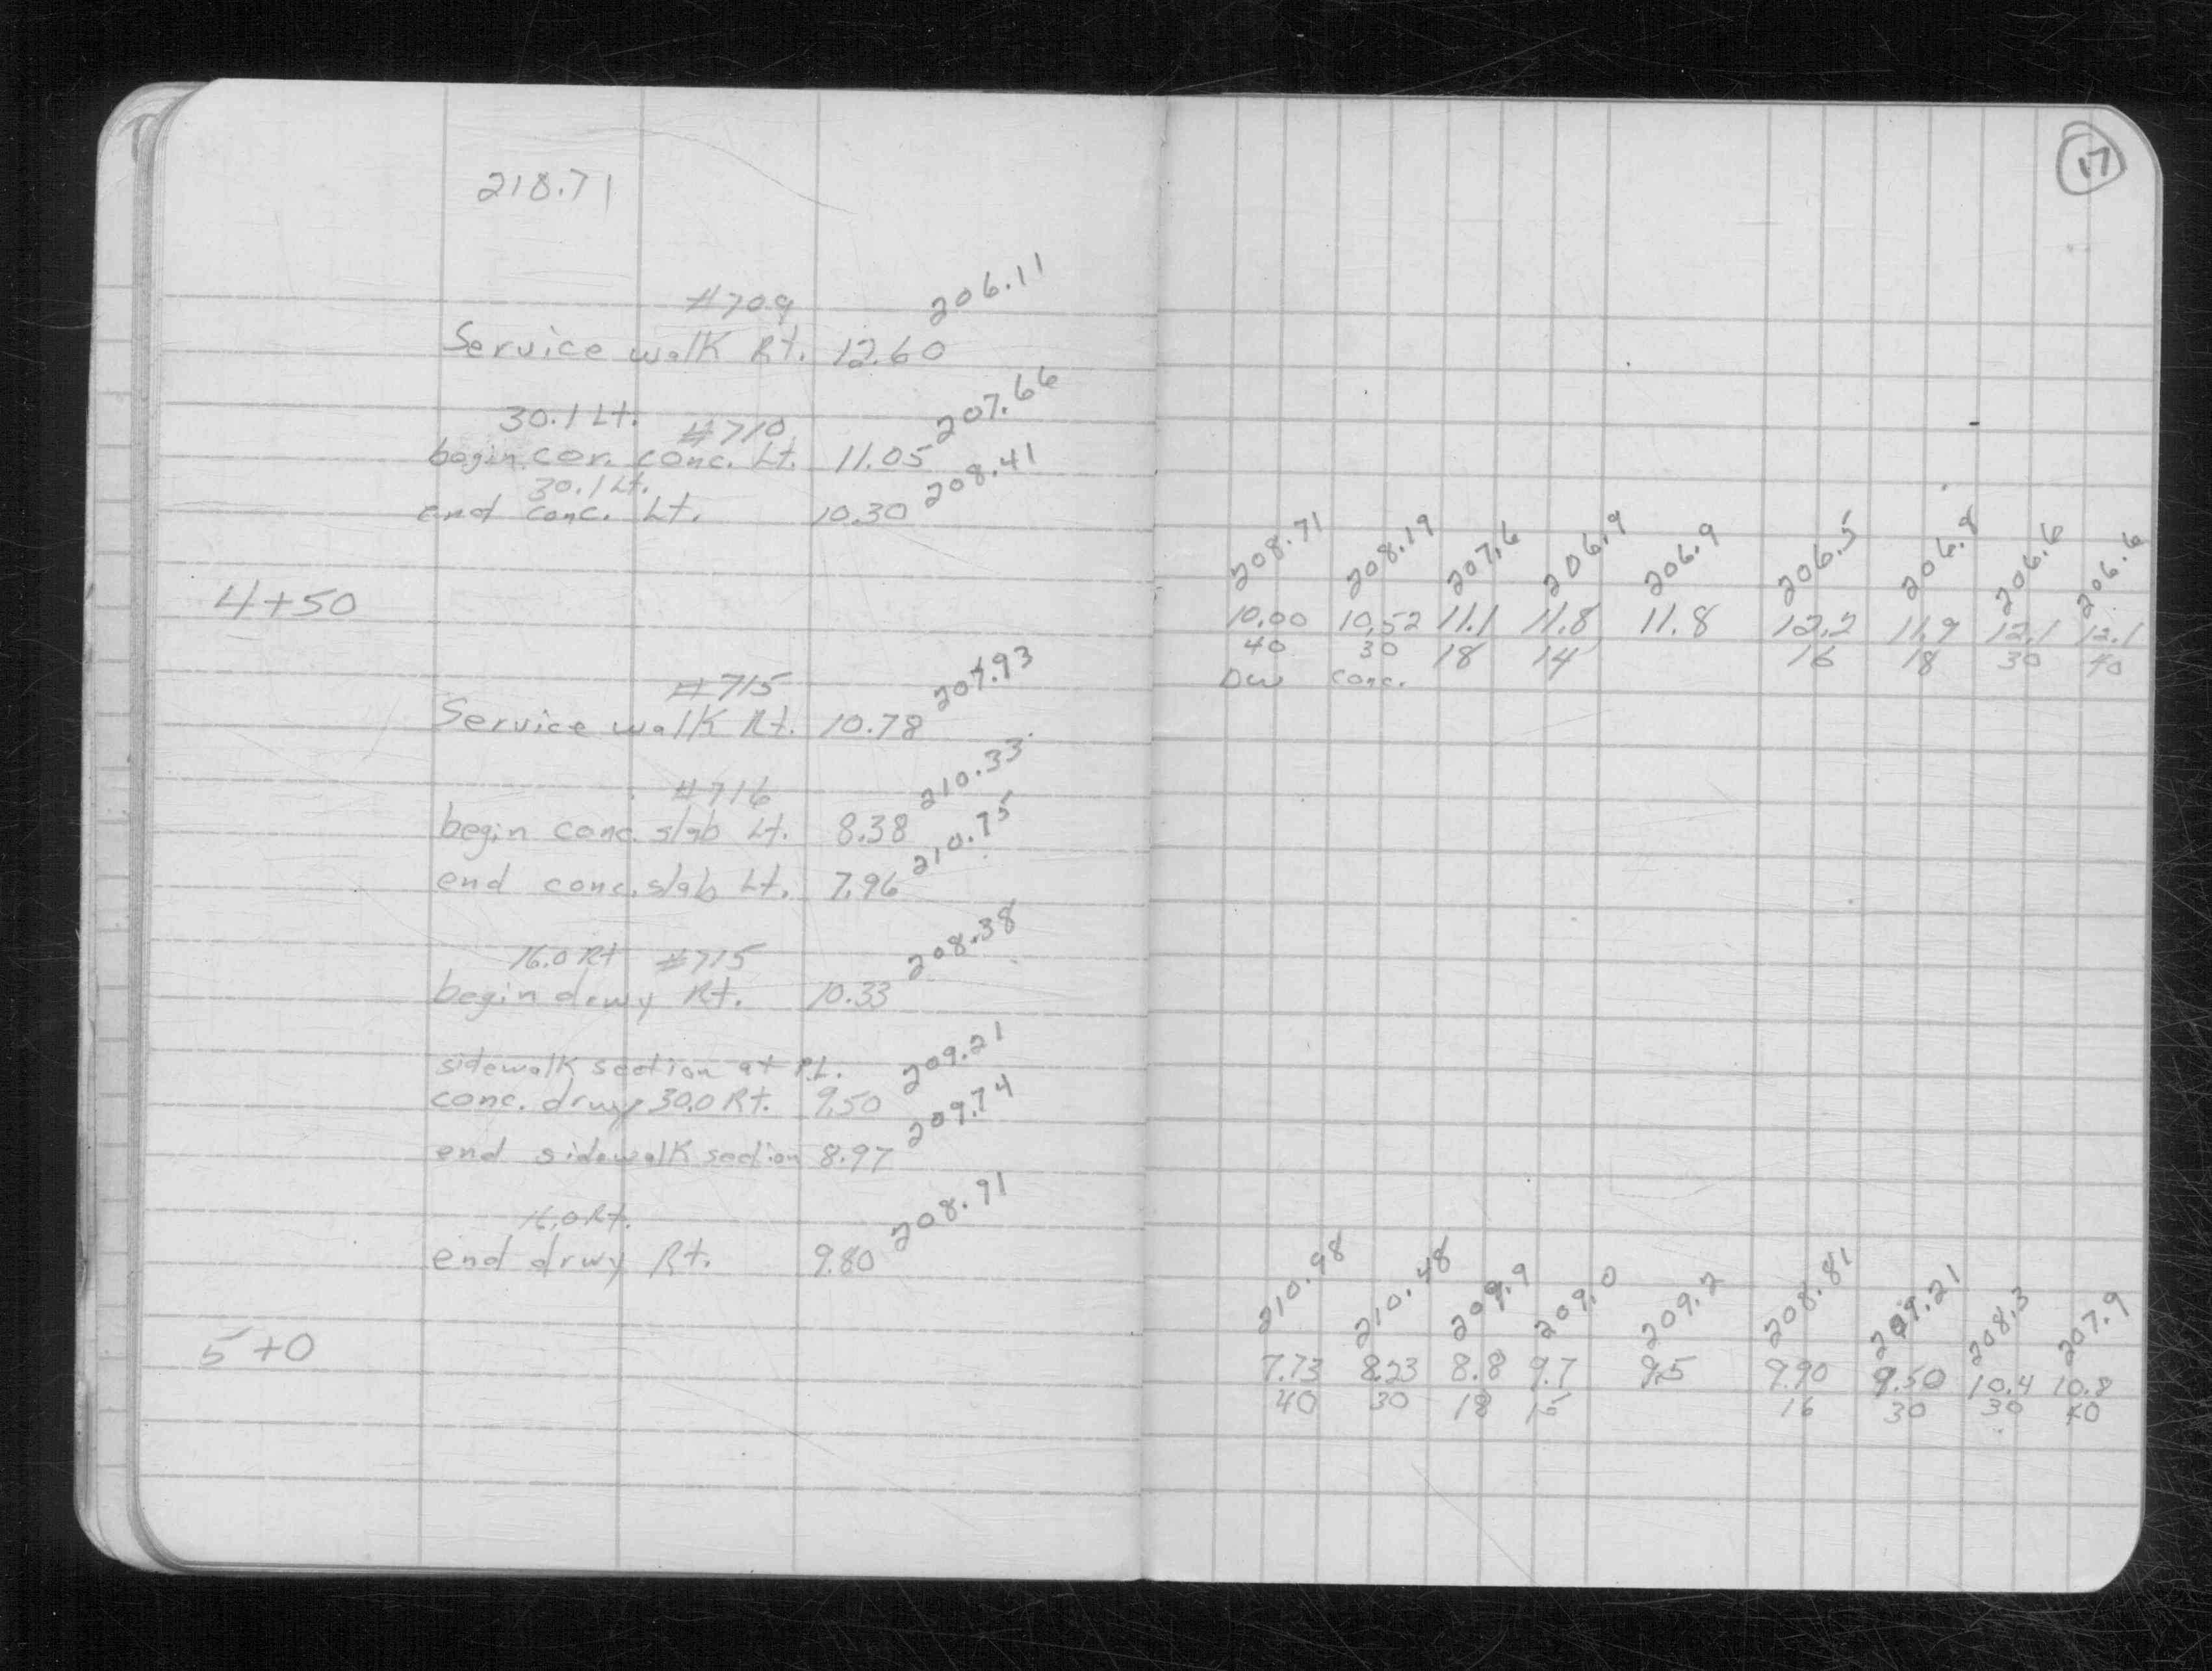 218.71
#709 206.11
Service walk Rt. 12.60
30.1 Lt. #710 207.66
begin cor. conc. Lt. 11.05
30.1 Lt. 208.41
end conc. Lt. 10.30
4+50
#715 207.93
Service walk Rt. 10.78
#716 210.33
begin conc. slab Lt. 8.38
210.75
end conc. slab Lt. 7.96
16.0 Rt #715 208.38
begin drwy Rt. 10.33
sidewalk section at P.L. 209.21
conc. drwy 30.0 Rt. 9.50
209.74
end sidewalk section 8.97
16.0 Rt. 208.91
end drwy Rt. 9.80
5+0
17
208.71 208.19 207.6 206.9 206.9 206.5 206.8 206.6 206.6
10.00 10.52 11.1 11.8 11.8 12.2 11.9 12.1 12.1
40 30 18 14 16 18 30 40
DW conc.
210.98 210.48 209.9 209.0 209.2 208.81 209.21 208.3 207.9
7.73 8.23 8.8 9.7 9.5 9.90 9.50 10.4 10.8
40 30 18 15 16 30 30 40